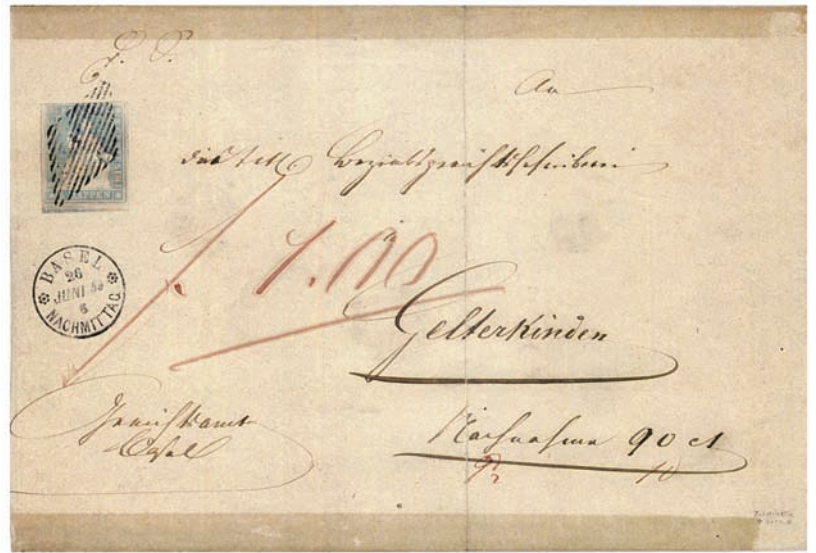 An
die tit. Bezirksgerichtsschreiberei
à
Gelterkinden
RAPPEN
BASEL
26
JUNI 58
6
NACHMITTAG
1.00
Gerichtsamt
Basel
Nachnahme 90 ct
10